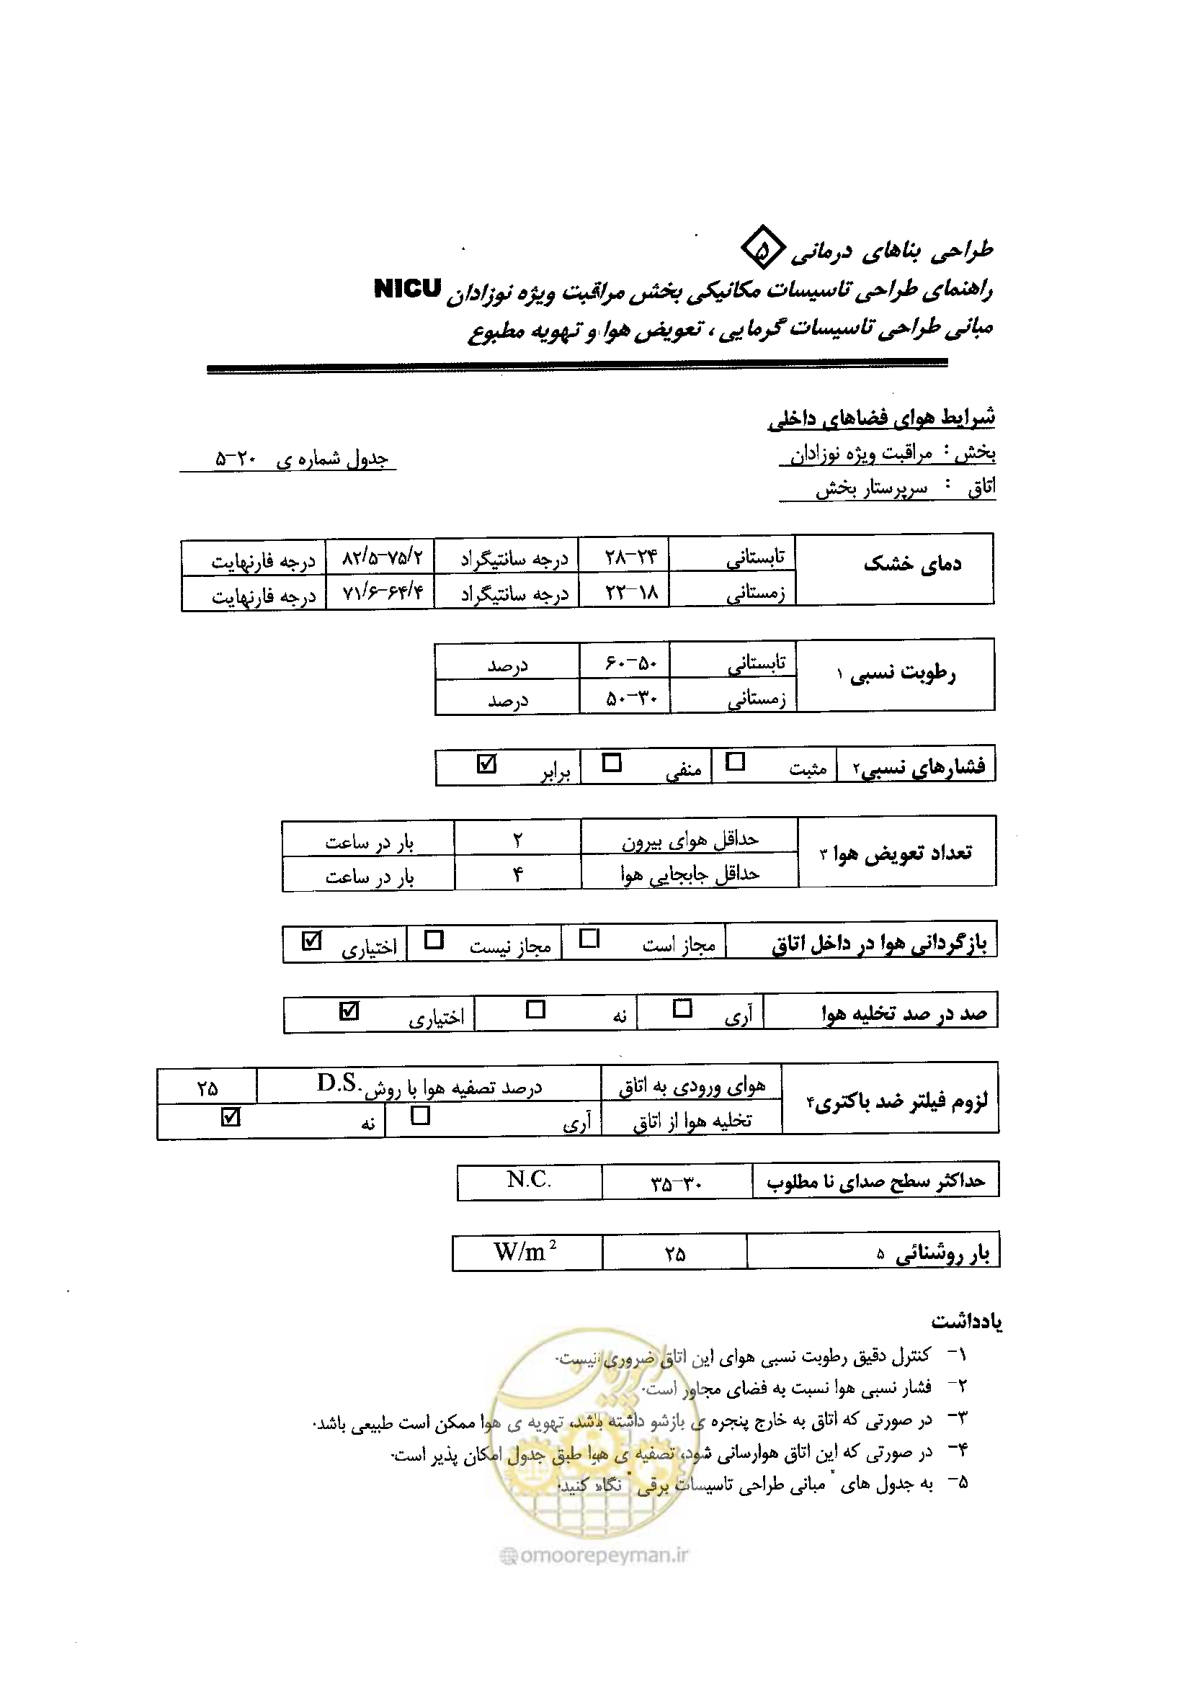 طراحی بناهای درمانی ۵
راهنمای طراحی تاسیسات مکانیکی بخش مراقبت ویژه نوزادان NICU
مبانی طراحی تاسیسات گرمایی ، تعویض هوا و تهویه مطبوع
شرایط هوای فضاهای داخلی
بخش : مراقبت ویژه نوزادان
جدول شماره ی ۲۰-۵
اتاق : سرپرستار بخش
دمای خشک
تابستانی ۲۴-۲۸ درجه سانتیگراد ۷۵/۲-۸۲/۵ درجه فارنهایت
زمستانی ۱۸-۲۲ درجه سانتیگراد ۶۴/۴-۷۱/۶ درجه فارنهایت
رطوبت نسبی ۱
تابستانی ۵۰-۶۰ درصد
زمستانی ۳۰-۵۰ درصد
فشارهای نسبی۲ مثبت ☐ منفی ☐ برابر ☑
تعداد تعویض هوا ۳
حداقل هوای بیرون ۲ بار در ساعت
حداقل جابجایی هوا ۴ بار در ساعت
بازگردانی هوا در داخل اتاق مجاز است ☐ مجاز نیست ☐ اختیاری ☑
صد در صد تخلیه هوا آری ☐ نه ☐ اختیاری ☑
لزوم فیلتر ضد باکتری۴
هوای ورودی به اتاق درصد تصفیه هوا با روش D.S. ۲۵
تخلیه هوا از اتاق آری ☐ نه ☑
حداکثر سطح صدای نا مطلوب ۳۰-۳۵ N.C.
بار روشنائی ۵ ۲۵ W/m²
یادداشت
۱- کنترل دقیق رطوبت نسبی هوای این اتاق ضروری نیست.
۲- فشار نسبی هوا نسبت به فضای مجاور است.
۳- در صورتی که اتاق به خارج پنجره ی بازشو داشته باشد، تهویه ی هوا ممکن است طبیعی باشد.
۴- در صورتی که این اتاق هوارسانی شود، تصفیه ی هوا طبق جدول امکان پذیر است.
۵- به جدول های " مبانی طراحی تاسیسات برقی " نگاه کنید.
امور پیمان
@omoorepeyman.ir